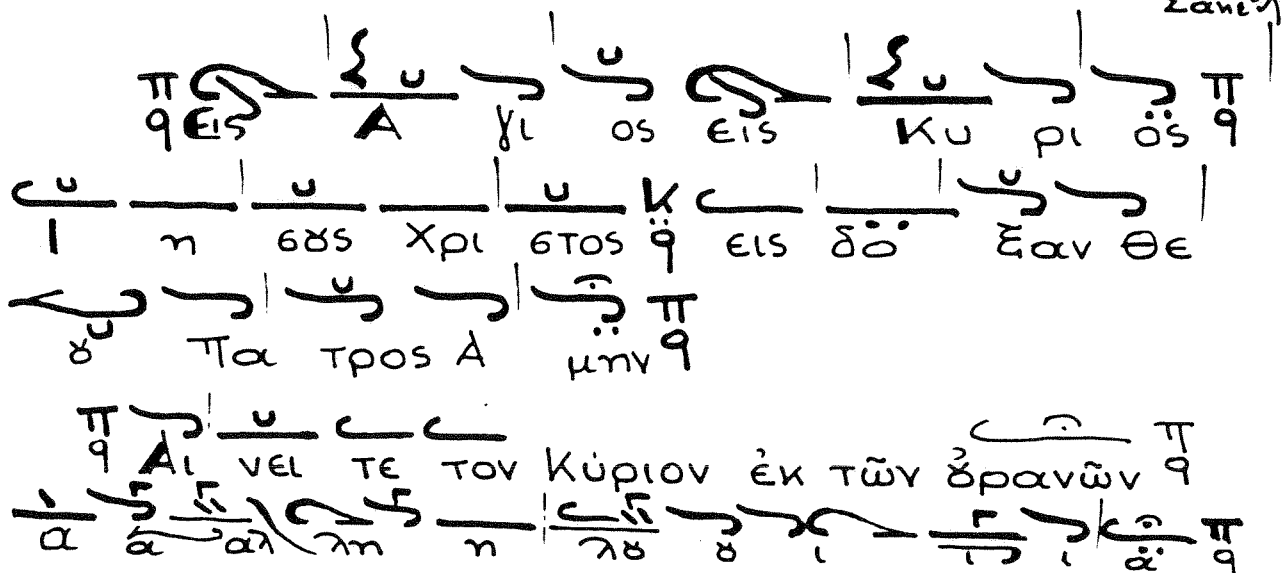 π
ϥ Εις Α γι ος εις Κυ ρι ος π
ϥ
Ι η σȣς Χρι στος κ
ϥ εις δο ξαν Θε
ȣ Πα τρος Ἀ μην π
ϥ
π
ϥ Αι νει τε τον Κύριον ἐκ τῶν ȣ̓ρανῶν π
ϥ
α α αλ λη η λȣ ȣ ι ι ι α π
ϥ